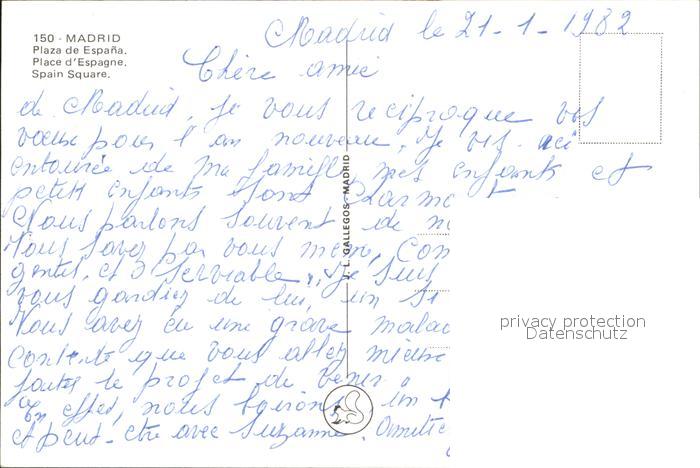 150 - MADRID
Plaza de España.
Place d'Espagne.
Spain Square.
Madrid le 21-1-1982
Chère amie
de Madrid, je vous reciproque vos
vœux pour l'an nouveau. Je vis ici
entourée de ma famille, mes enfants et
petits enfants sont charma
Nous parlons souvent de
Vous savez par vous même, com
gentil, et serviable. Je suis
vous gardiez de lui, un
Vous avez eu une grave malad
contente que vous allez mieux
faites le projet de venir.
En effet, nous boirons un
et peut-etre avec Suzanne. Amitié
J. L. GALLEGOS - MADRID
privacy protection
Datenschutz